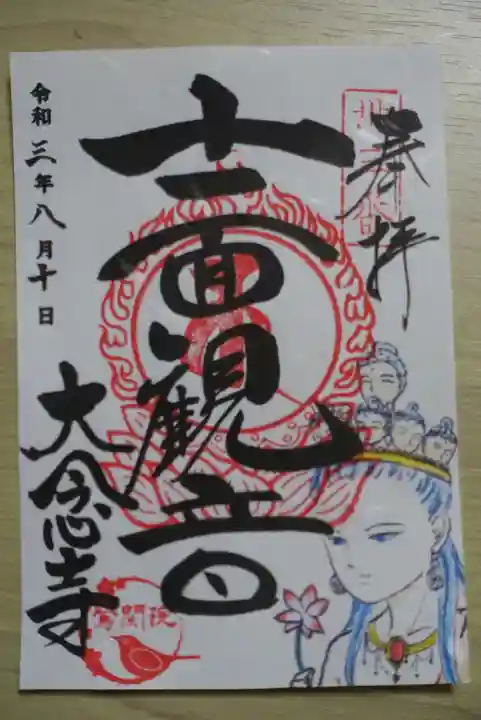 奉拝
十一面観音
大念寺
令和三年八月十日
鶯関院